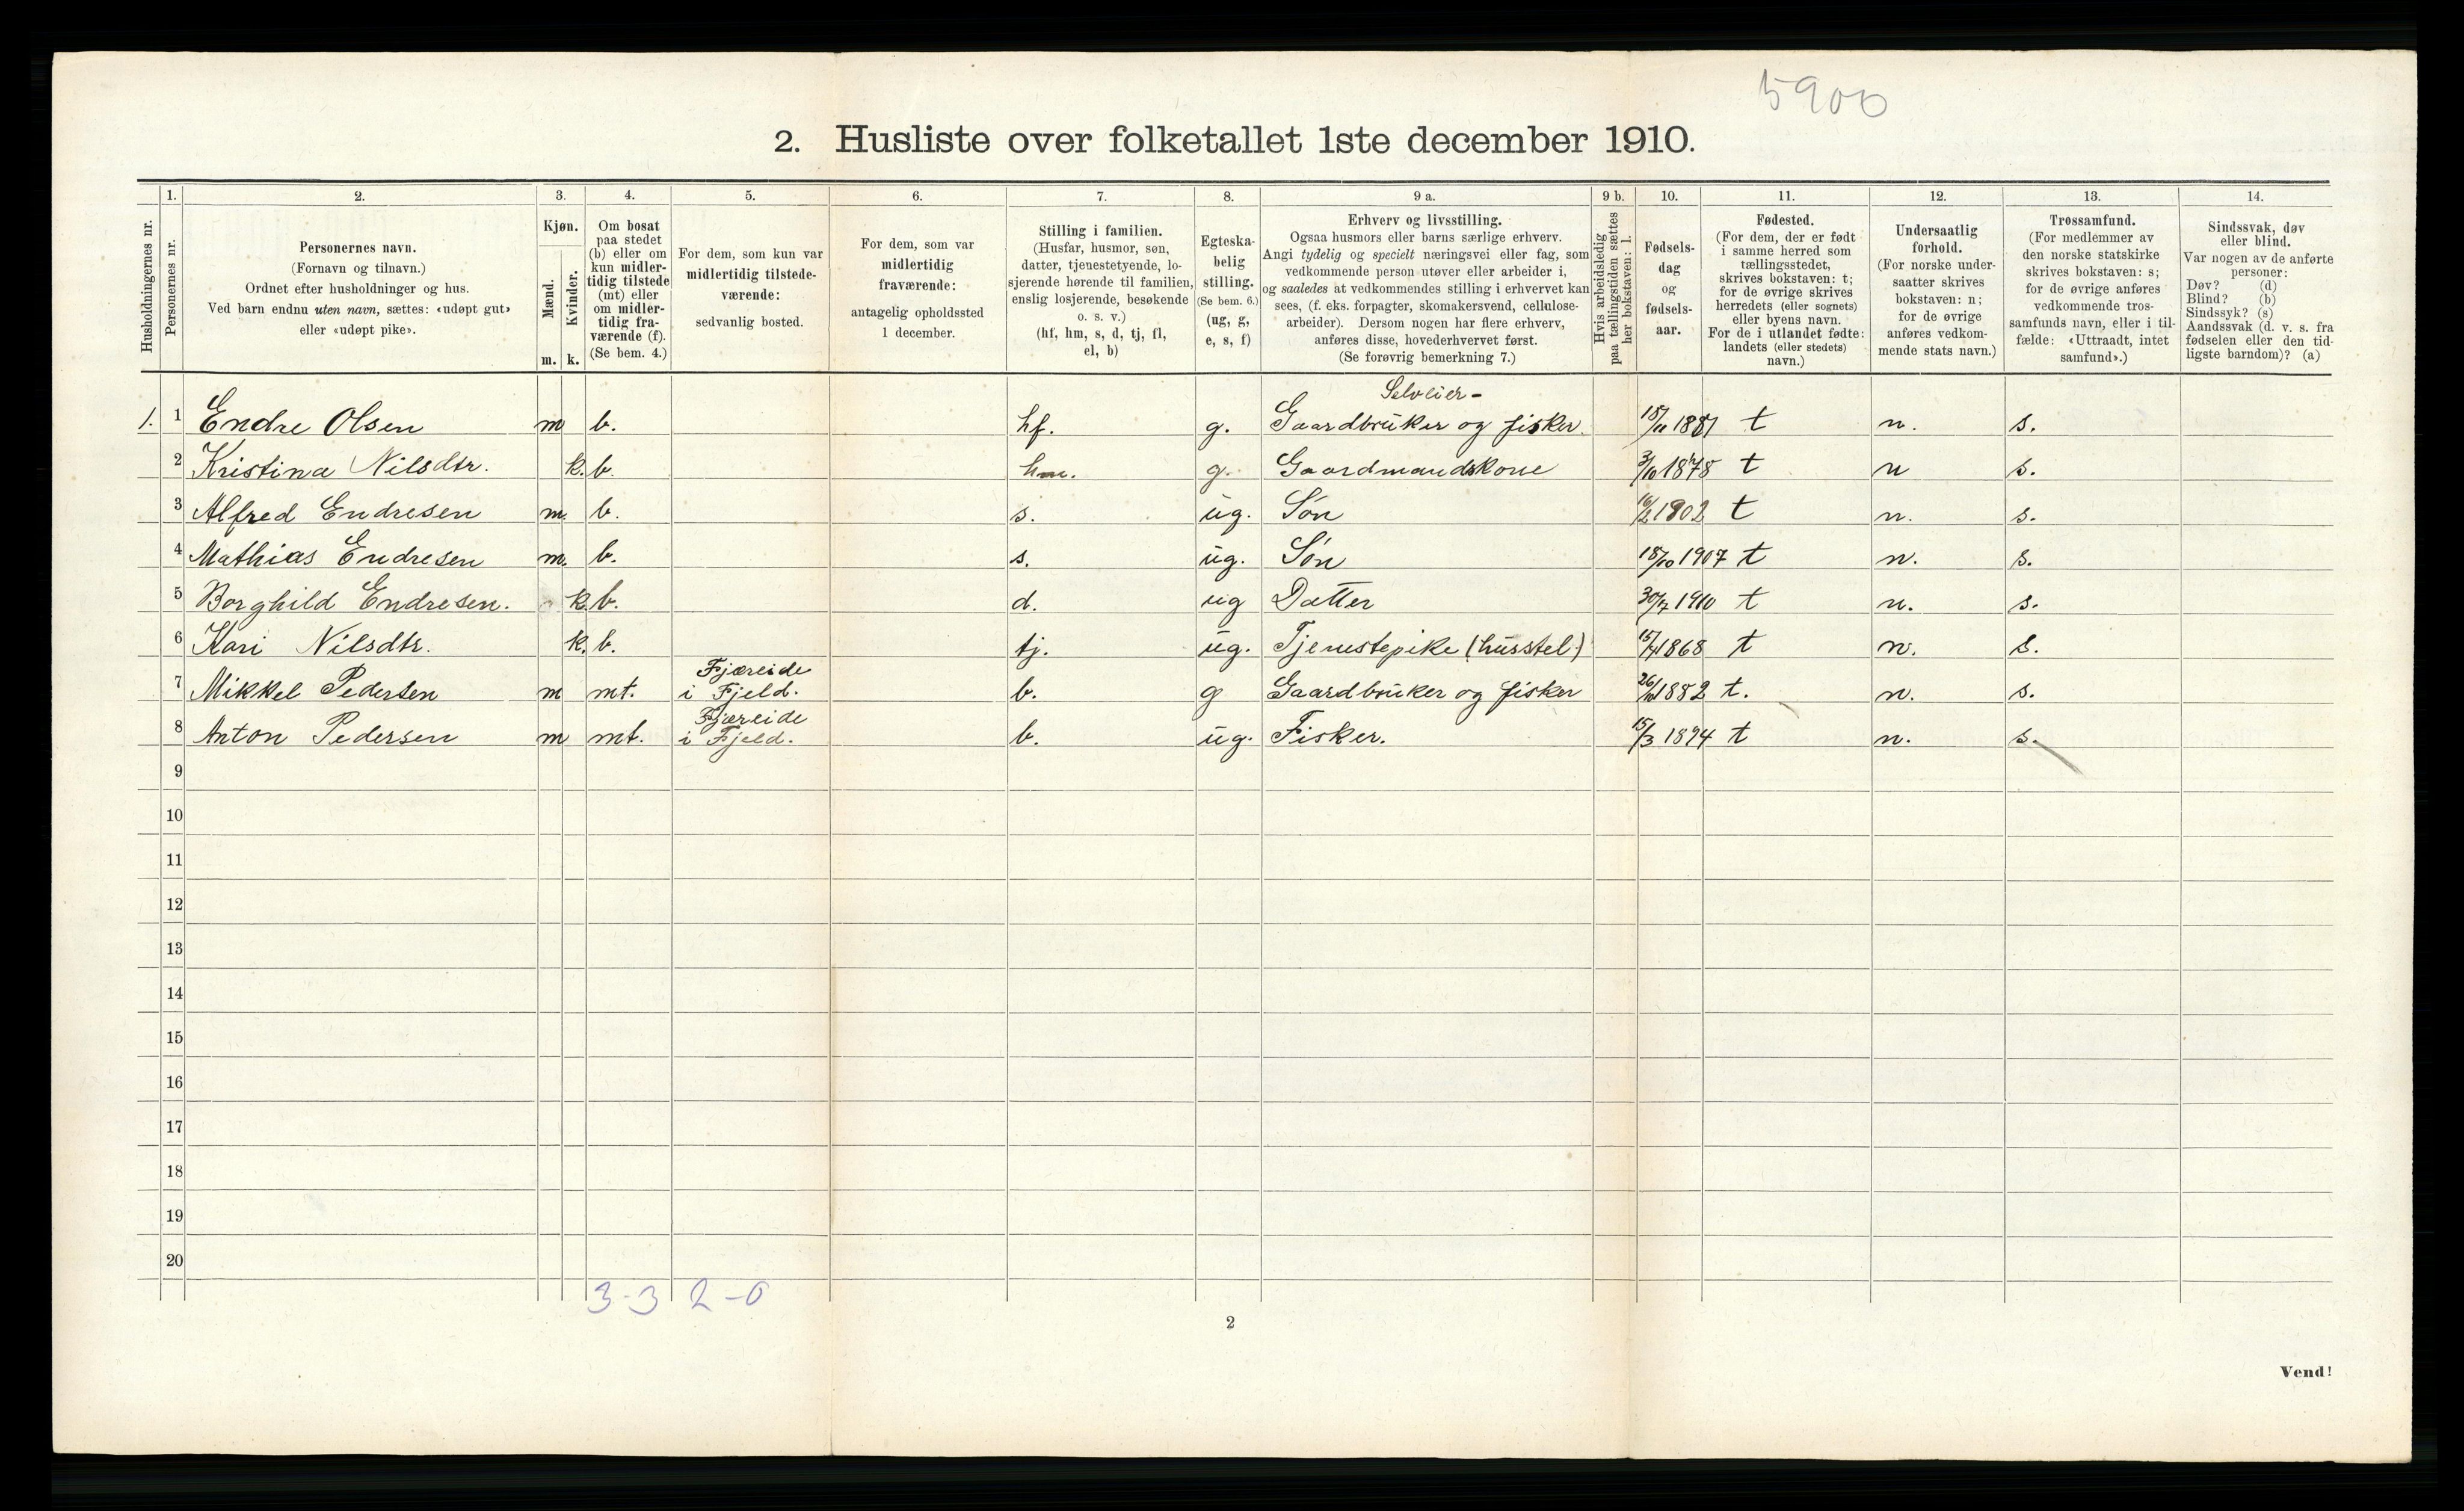 5900
2. Husliste over folketallet 1ste december 1910.
Husholdningernes nr.
1.
Personernes nr.
2.
Personernes navn.
(Fornavn og tilnavn.)
Ordnet efter husholdninger og hus.
Ved barn endnu uten navn, sættes: «udøpt gut»
eller «udøpt pike».
3.
Kjøn.
Mænd.
Kvinder.
m. k.
4.
Om bosat
paa stedet
(b) eller om
kun midler-
tidig tilstede
(mt) eller
om midler-
tidig fra-
værende (f).
(Se bem. 4.)
5.
For dem, som kun var
midlertidig tilstede-
værende:
sedvanlig bosted.
6.
For dem, som var
midlertidig
fraværende:
antagelig opholdssted
1 december.
7.
Stilling i familien.
(Husfar, husmor, søn,
datter, tjenestetyende, lo-
sjerende hørende til familien,
enslig losjerende, besøkende
o. s. v.)
(hf, hm, s, d, tj, fl,
el, b)
8.
Egteska-
belig
stilling.
(Se bem. 6.)
(ug, g,
e, s, f)
9 a.
Erhverv og livsstilling.
Ogsaa husmors eller barns særlige erhverv.
Angi tydelig og specielt næringsvei eller fag, som
vedkommende person utøver eller arbeider i,
og saaledes at vedkommendes stilling i erhvervet kan
sees, (f. eks. forpagter, skomakersvend, cellulose-
arbeider). Dersom nogen har flere erhverv,
anføres disse, hovederhvervet først.
(Se forøvrig bemerkning 7.)
9 b.
Hvis arbeidsledig
paa tællingstiden sættes
her bokstaven: l.
10.
Fødsels-
dag
og
fødsels-
aar.
11.
Fødested.
(For dem, der er født
i samme herred som
tællingsstedet,
skrives bokstaven: t;
for de øvrige skrives
herredets (eller sognets)
eller byens navn.
For de i utlandet fødte:
landets (eller stedets)
navn.)
12.
Undersaatlig
forhold.
(For norske under-
saatter skrives
bokstaven: n;
for de øvrige
anføres vedkom-
mende stats navn.)
13.
Trossamfund.
(For medlemmer av
den norske statskirke
skrives bokstaven: s;
for de øvrige anføres
vedkommende tros-
samfunds navn, eller i til-
fælde: «Uttraadt, intet
samfund».)
14.
Sindssvak, døv
eller blind.
Var nogen av de anførte
personer:
Døv? (d)
Blind? (b)
Sindssyk? (s)
Aandssvak (d. v. s. fra
fødselen eller den tid-
ligste barndom)? (a)
Selveier-
1. 1 Endre Olsen m b. hf. g. Gaardbruker og fisker. t n. s.
2 Kristina Nilsdtr. k. b. hm. g. Gaardmandskone 3/10 1878 t n s.
3 Alfred Endresen m. b. s. ug. Søn 16/2 1902 t n. s.
4 Mathias Endresen m. b. s. ug. Søn 18/10 1907 t n. s.
5 Borghild Endresen. k. b. d. ug Datter 30/7 1910 t n. s.
6 Kari Nilsdtr. k. b. tj. ug. Tjenestepike (husstel) 1868 t n. s.
Fjæreide
7 Mikkel Pedersen m mt. i Fjeld. b. g Gaardbruker og fisker 1882 t. n. s.
Fjæreide
8 Anton Pedersen m mt. i Fjeld. b. ug. Fisker. 15/3 1894 t n. s.
9
10
11
12
13
14
15
16
17
18
19
20
3-3 2-0
2
Vend!